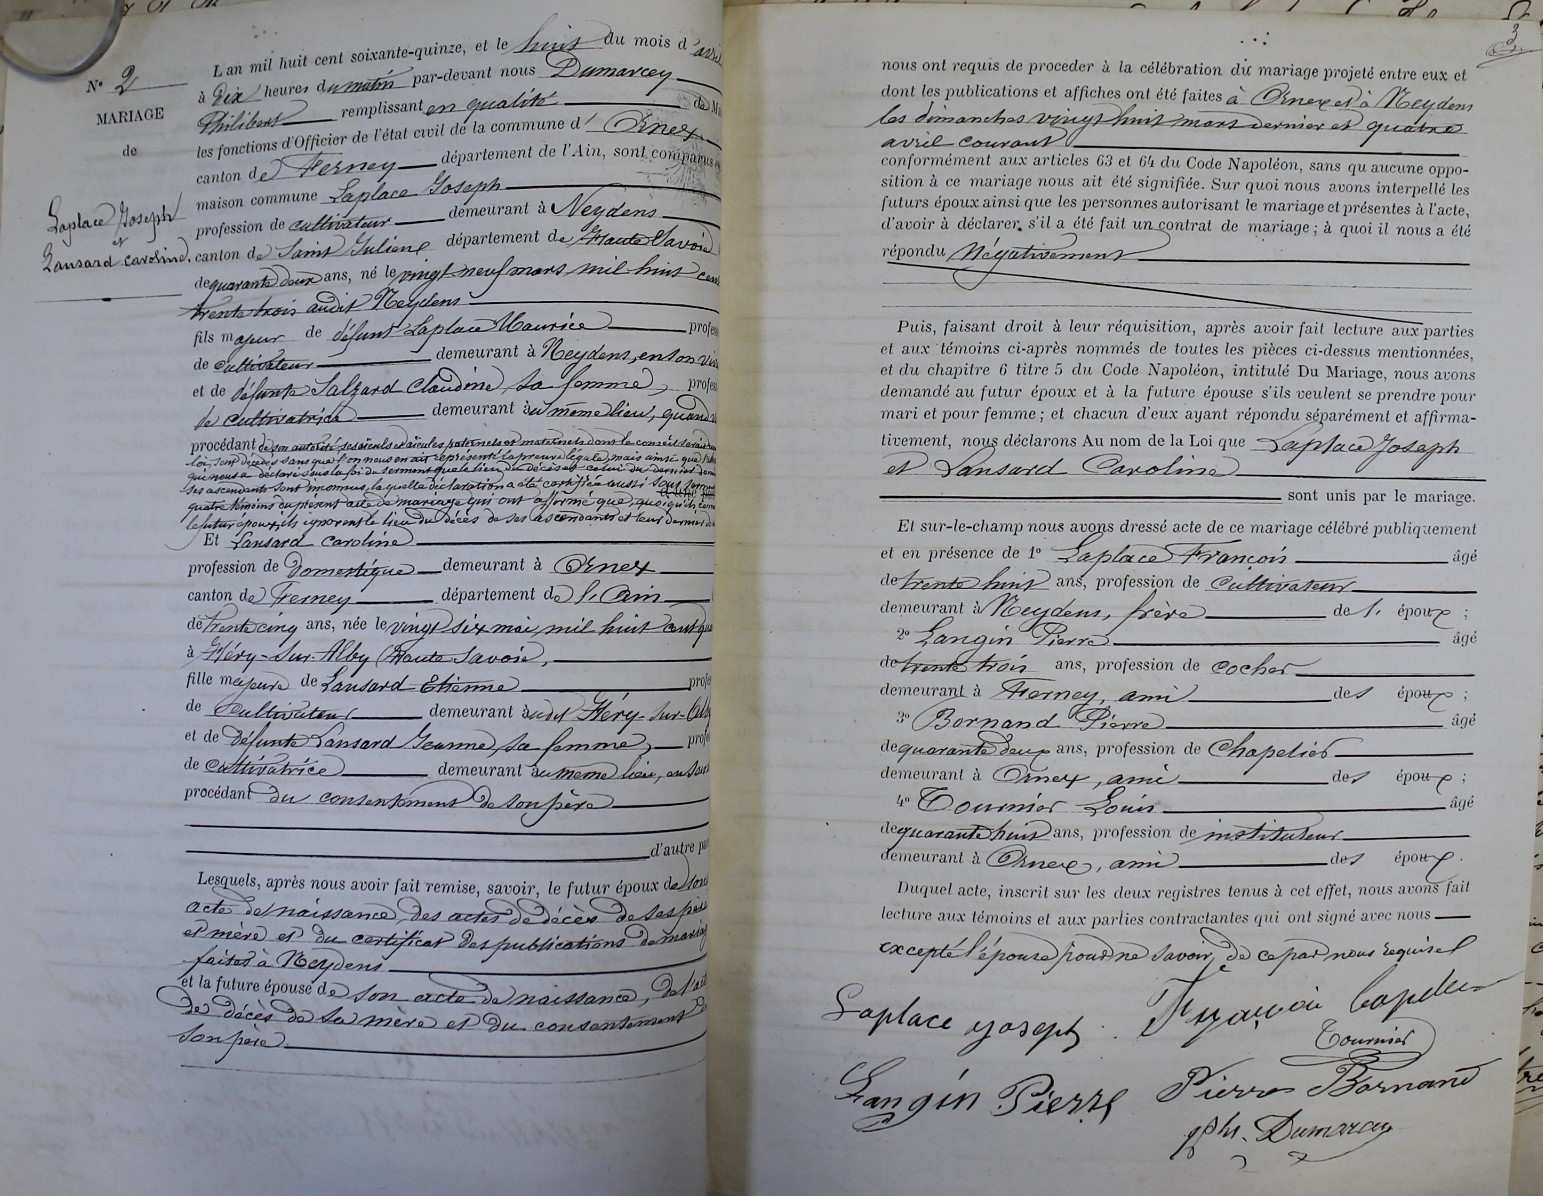 N° 2
MARIAGE
de
Laplace Joseph
et
Lansard Caroline.
L'an mil huit cent soixante-quinze, et le huit du mois d'avril
à dix heures du matin par-devant nous Dumarcey
Philibert remplissant en qualité de M
les fonctions d'Officier de l'état civil de la commune d' Ornex
canton de Ferney département de l'Ain, sont comparus
maison commune Laplace Joseph
profession de cultivateur demeurant à Neydens
canton de Saint Julien département de Haute Savoie
de quarante deux ans, né le vingt neuf mars mil huit cent
trente trois audit Neydens
fils majeur de défunt Laplace Maurice profes
de cultivateur demeurant à Neydens, en son viv
et de défunte Salzard Claudine, sa femme, profes
de cultivatrice demeurant au même lieu, quand
procédant de son autorité, ses aïeuls et aïeules paternels et maternels dans le conseil
loi, sont décédés sans que l'on nous en ait représenté la preuve légale, mais ainsi que
qui nous a déclaré sous la foi du serment que le lieu du décès et celui du dernier dom
ses ascendants sont inconnus, laquelle déclaration a été certifiée aussi sous serment
quatre témoins du présent acte de mariage qui ont affirmé que, quoiqu'ils conn
le futur époux, ils ignorent le lieu du décès de ses ascendants et leur dernier do
Et Lansard Caroline
profession de domestique demeurant à Ornex
canton de Ferney département de l'Ain
de trente cinq ans, née le vingt six mai mil huit cent qua
à Héry-sur-Alby (Haute Savoie),
fille majeure de Lansard Etienne profes
de cultivateur demeurant audit Héry-sur-Alby
et de défunte Lansard Jeanne, sa femme, profes
de cultivatrice demeurant au même lieu, en son
procédant du consentement de son père
d'autre pa
Lesquels, après nous avoir fait remise, savoir, le futur époux de son
acte de naissance, des actes de décès de ses père
et mère et du certificat des publications de mariage
faites à Neydens
et la future épouse de son acte de naissance, de l'acte
de décès de sa mère et du consentement de
son père
3
nous ont requis de proceder à la célébration du mariage projeté entre eux et
dont les publications et affiches ont été faites à Ornex et à Neydens
les dimanches vingt huit mars dernier et quatre
avril courant
conformément aux articles 63 et 64 du Code Napoléon, sans qu'aucune oppo-
sition à ce mariage nous ait été signifiée. Sur quoi nous avons interpellé les
futurs époux ainsi que les personnes autorisant le mariage et présentes à l'acte,
d'avoir à déclarer s'il a été fait un contrat de mariage ; à quoi il nous a été
répondu Négativement
Puis, faisant droit à leur réquisition, après avoir fait lecture aux parties
et aux témoins ci-après nommés de toutes les pièces ci-dessus mentionnées,
et du chapitre 6 titre 5 du Code Napoléon, intitulé Du Mariage, nous avons
demandé au futur époux et à la future épouse s'ils veulent se prendre pour
mari et pour femme ; et chacun d'eux ayant répondu séparément et affirma-
tivement, nous déclarons Au nom de la Loi que Laplace Joseph
et Lansard Caroline
sont unis par le mariage.
Et sur-le-champ nous avons dressé acte de ce mariage célébré publiquement
et en présence de 1° Laplace François âgé
de trente huit ans, profession de cultivateur
demeurant à Neydens, frère de l' époux ;
2° Langin Pierre âgé
de trente trois ans, profession de cocher
demeurant à Ferney, ami des époux ;
3° Bornand Pierre âgé
de quarante deux ans, profession de Chapelier
demeurant à Ornex, ami des époux ;
4° Tournier Louis âgé
de quarante huit ans, profession de instituteur
demeurant à Ornex, ami des époux.
Duquel acte, inscrit sur les deux registres tenus à cet effet, nous avons fait
lecture aux témoins et aux parties contractantes qui ont signé avec nous
excepté l'épouse pour ne savoir, de ce par nous requise
Laplace Joseph. François Laplace
Tournier
Langin Pierre Pierre Bornand
Dumarcey